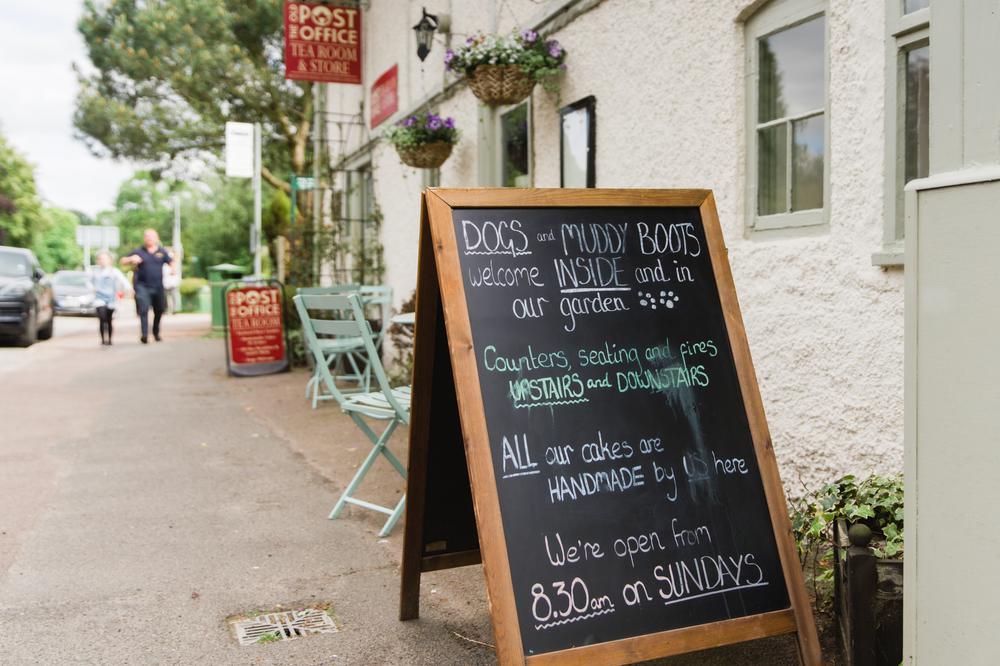 THE OLD
POST
OFFICE
TEA ROOM
& STORE
POST
OFFICE
TEA ROOM
DOGS and MUDDY BOOTS
welcome INSIDE and in
our garden
Counters, seating and fires
UPSTAIRS and DOWNSTAIRS
ALL our cakes are
HANDMADE by US here
We're open from
8.30am on SUNDAYS